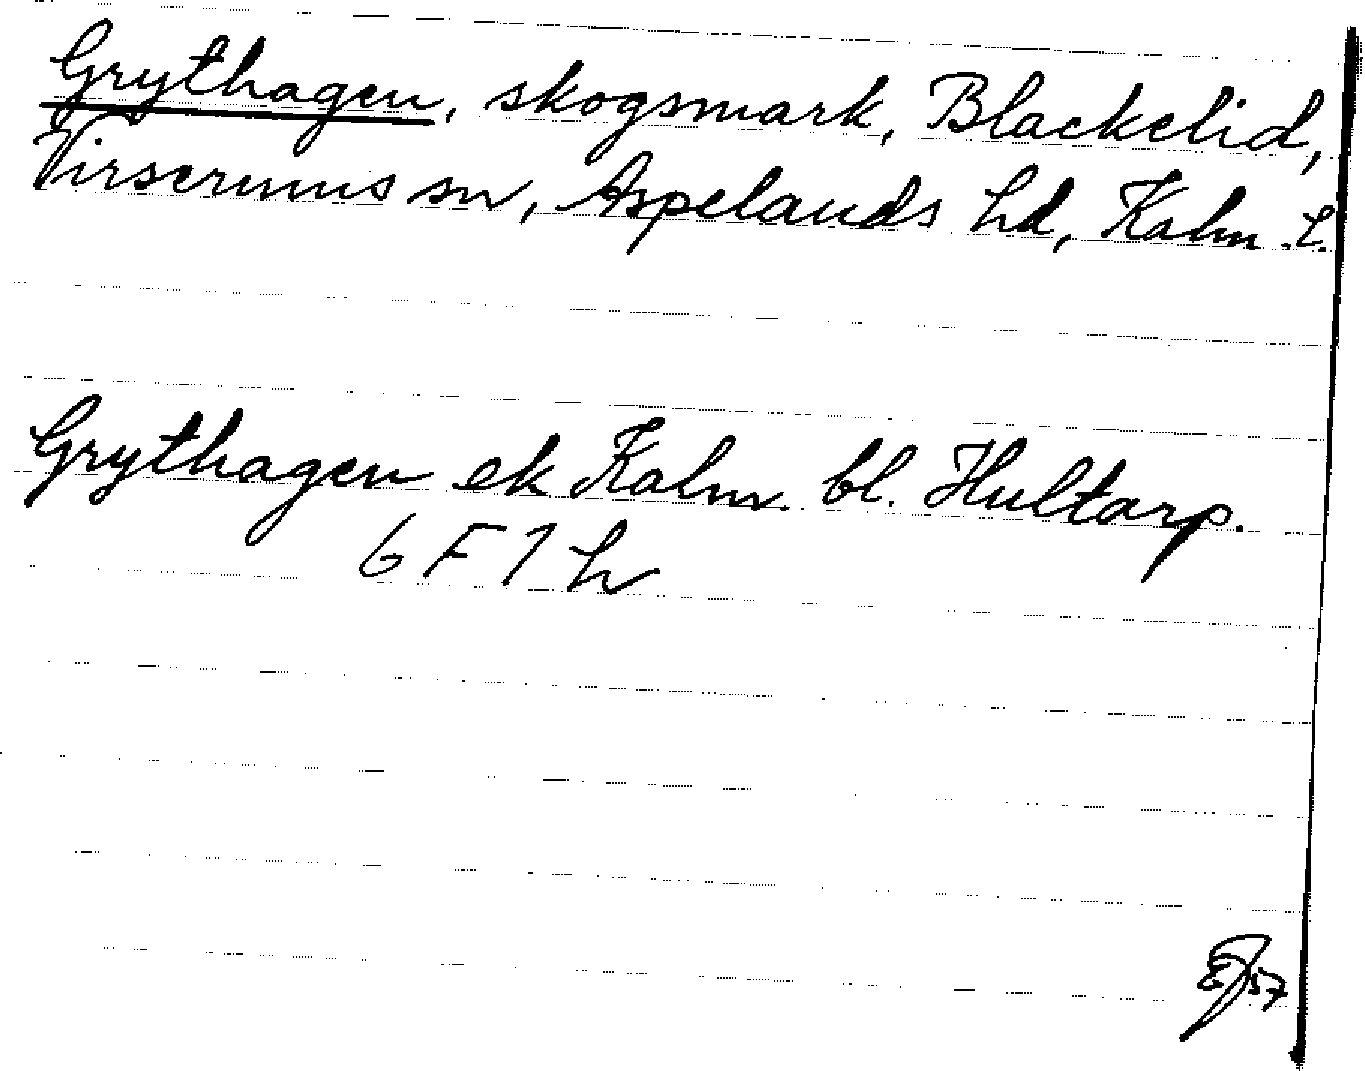 Grythagen, skogsmark, Blackelid,
Virserums sn, Aspelands hd, Kalm. l.
Grythagen ek Kalm. bl. Hultarp.
6 F 1 h
57